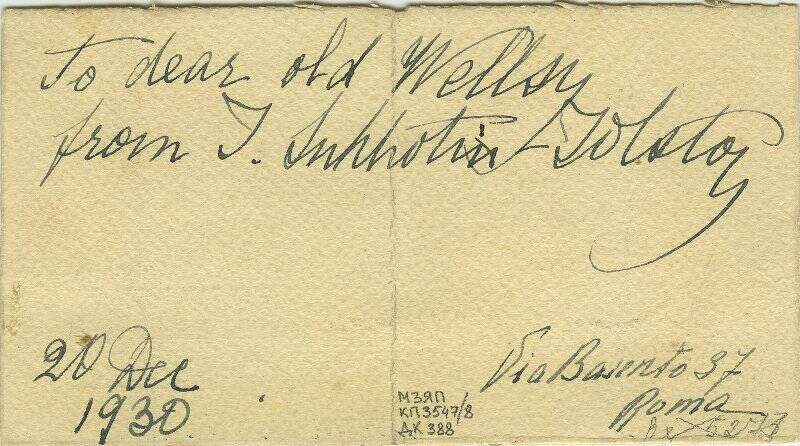 To dear old Wellsy
from T. Sukhotin-Tolstoy
20 Dec
1930
Via Basento 37
Roma
МЗЯП
КП3547/8
ДК 388